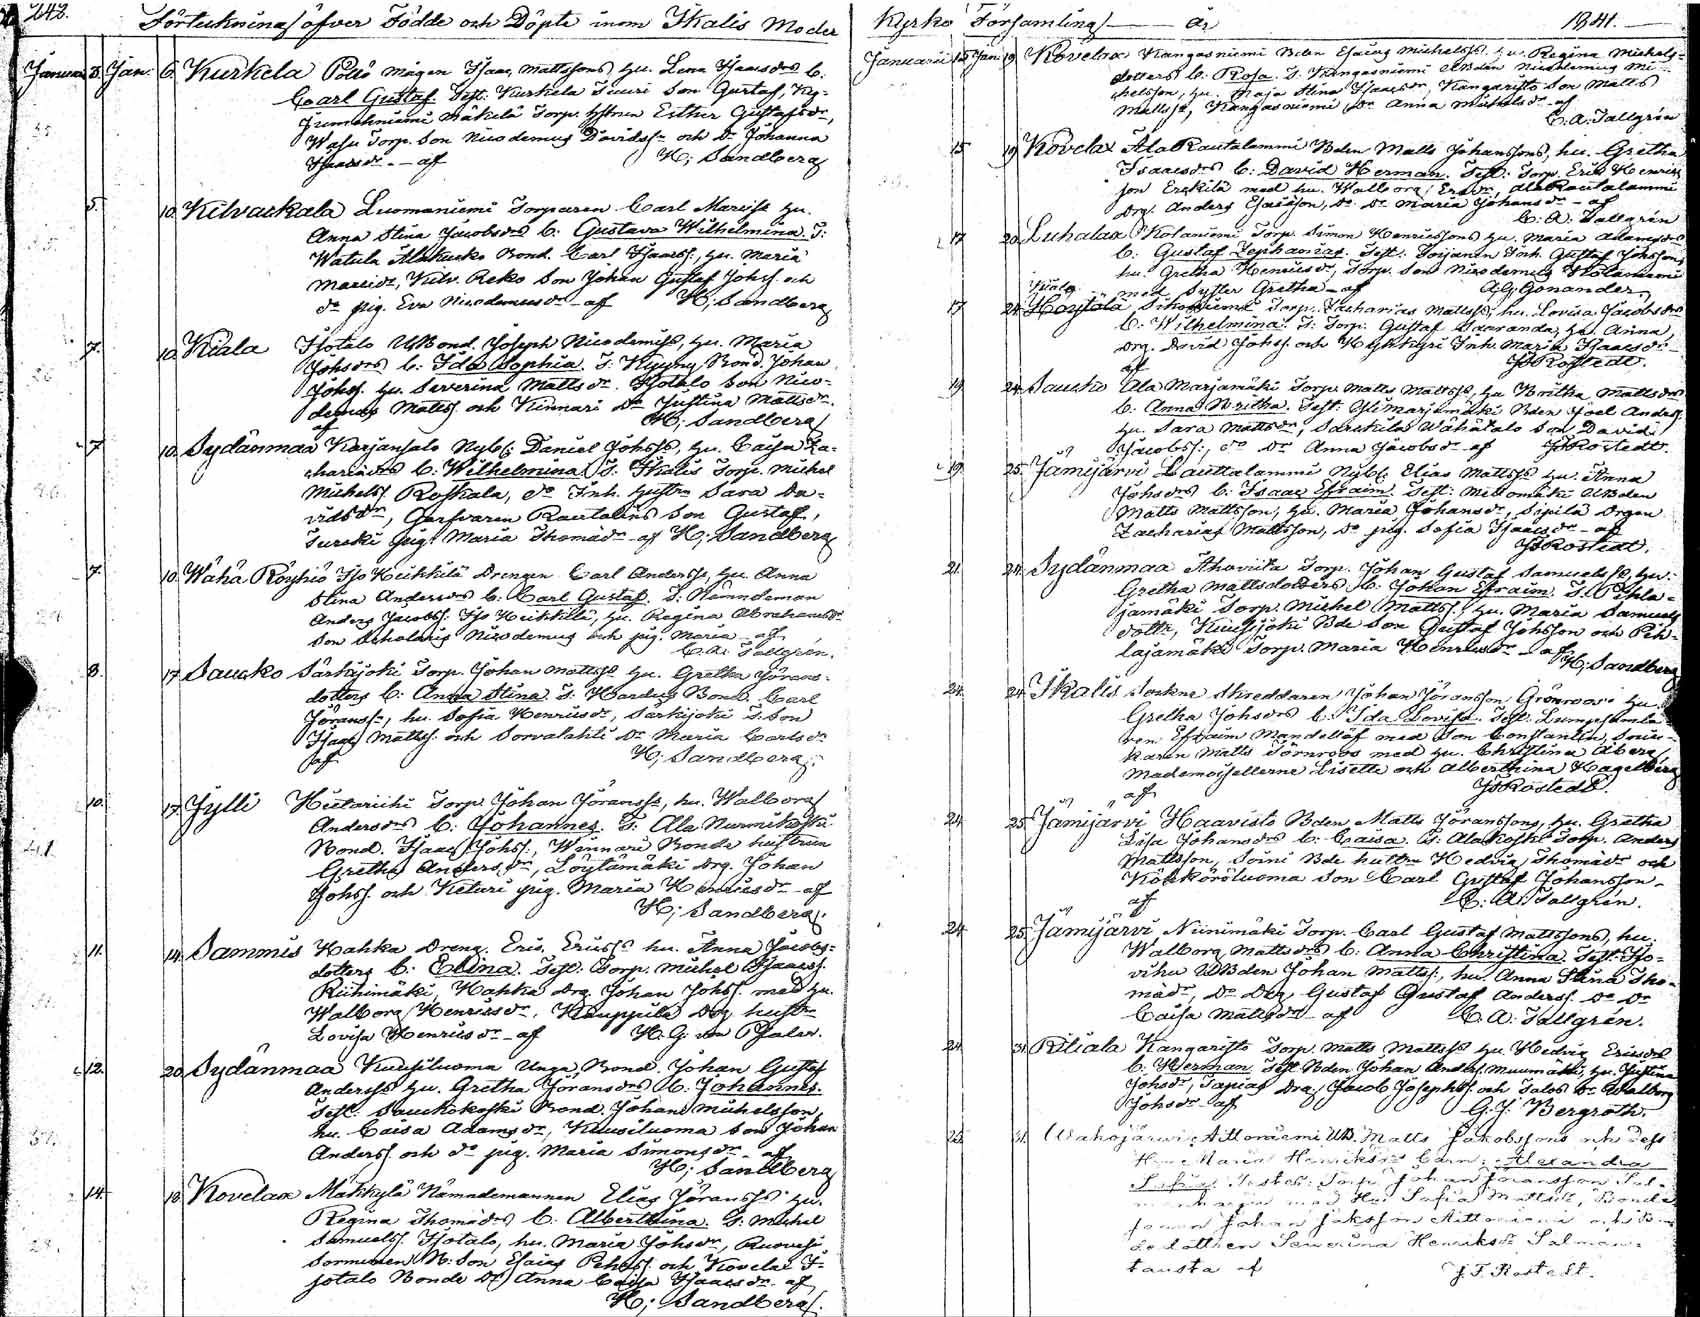 242. Förteckning öfver Födde och Döpte inom Ikalis Moder
Januari 3. Jan: 6. Kurkela Pöllö mågen Isaac Mattssons hu. Lena Isaacsdrs b:
Carl Gustaf. Test: Kurkela son Gustaf, Ky-
Mäkelä Torp. Esther Gustafsdr,
Torp. Son Nicodemus Davidss. och Dr Johanna
Isaacsdr. - af H; Sandberg
5. 10. Kilvackala Luomaniemi Torparen Carl hu.
Anna Stina Jacobsdrs b: Gustava Wilhelmina. T:
Watula Alakusko Bond. Carl Isaacss., hu. Maria
Kilv. Reko Son Johan Gustaf Johss. och
do pig. Eva Nicodemusdr - af H; Sandberg
7. 10. Kiala Isotalo UBond. Joseph Nicodemiss, hu. Maria
Johsdrs b: Ida Sophia. T: Kyyny Bond. Johan
Johss. hu. Severina Mattsdr. Isotalo Son Nico-
demus Mattss. och Kinnari Dr Justina Mattsdr.
af H; Sandberg
7. 10. Sydänmaa Karjansalo Nybb. Daniel Johsss, hu. Caisa Za-
chariædrs b: Wilhelmina. T: Ikalis Torp. Michel
Michelss. Roskala, do Inh. hustru Sara Da-
vidsdr, Garfvaren Rautalins Son Gustaf,
Tureki pig. Maria Thomædr - af H; Sandberg
7. 10. Wähä Röyhiö Iso Heikkilä Drengen Carl Anderss, hu. Anna
Stina Andersdrs b: Carl Gustaf. T: Nämndeman
Anders Jacobss. Iso Heikkilä, hu. Regina Abrahamsdr
Son Scholaris Nicodemus och pig. Maria - af
C. A. Tallgrén.
8. 17. Saucko Särkijoki Torp. Johan Mattss hu. Gretha Jörans-
dotters b: Anna Stina. T: Hardus Bond. Carl
Jöranss., hu. Sofia Henricsdr, Särkijoki T. Son
Isaac Mattss. och Sorvalahti Dr Maria Carlsdr
af H; Sandberg
10. 17. Jylli Hietariihi Torp. Johan Jöransss, hu. Walborg
Andersdrs b: Johannes. T: Ala Nurmikoski
Bond. Isaac Johss., Winnari Bonde hustrun
Gretha Andersdr, Löytämäki Drg. Johan
Johss. och Keturi pig. Maria Henricsdr - af
H; Sandberg.
11. 14. Sammis Hahka Dreng. Eric Ericss hu. Anna Jacobs-
dotters b: Elina. Test: Torp. Michel Isaacss.
Riihimäki, Hahka Drg. Johan Johss. med hu.
Walborg Henricsdr, Kauppila Drg hustr
Lovisa Henricsdr - af H. G. von Pfaler.
12. 20. Sydänmaa Kuusiluoma Unga Bond. Johan Gustaf
Anderss hu. Gretha Jöransdrs b: Johannes.
Test: Sauckokoski Bond. Johan Michelsson,
hu. Caisa Adamsdr, Kuusiluoma Son Johan
Anderss. och do pig. Maria Simonsdr - af
H; Sandberg
14. 18. Kovelax Mäkkylä Nämndemannen Elias Jöransss hu.
Regina Thomædrs b: Alberthina. T: Michel
Samuelss. Isotalo, hu. Maria Johsdr, Ruovesi
Sormunen B: Son Esaias Pehrss. och Kovelax I-
sotalo Bonde Dr Anna Caisa Isaacsdr - af
H; Sandberg.
Kyrko Församling år 1841.
Januarii 15 Jan: 19 Kovelax Kangasniemi Bden Esaias Michelsss hu. Regina Michels-
dotters b: Rosa. T: Kangasniemi Bden Nicodemus Mi-
chelsson, hu. Maja Stina Isaacsdr, Kangaristo Son Matts
Mattss, Kangasniemi Dr Anna Michelsdr - af
C. A. Tallgrén
15 19 Kovelax AlaRautalammi Bden Matts Johanssons, hu. Gretha
Isaacsdrs b: David Herman. Test: Torp. Eric Henrics
son Erkkilä med hu. Walborg Ersdr, AlaRautalammi
Drg. Anders Esaiæson, Do Dr Maria Johansdr - af
C. A. Tallgrén
17 20 Luhalax Kolaniemi Torp. Simon Henricssons hu. Maria Adamsdrs
b: Gustaf Zephanias. Test: Inh. Gustaf Johssons
hu. Gretha Henricsdr, Torp. Son Nicodemus Kolaniemi
med Syster Gretha - af A. G. Gonander.
17 24 Höytölä Torp. Zacharias Mattsss, hu. Lovisa Jacobsdrs
b: Wilhelmina. T: Torp. Gustaf Saaranda, hu. Anna,
Drg. David Johss. och Kyrkkyri Inh. Maria Isaacsdr -
af JTRostedt.
19 24 Saucko Ala Marjamäki Torp. Matts Mattsss, hu Britha Mattsdrs
b: Anna Britha. Test: Ylimarjamäki Bden Joel Anderss.
hu. Sara Mattsdr, Sarkkila Wähätalo Son David
Jacobss., do Dr Anna Jacobsdr - af JTRostedt.
19. 25. Jämijärvi Lauttalammi Nybb. Elias Mattsss hu. Anna
Johsdrs b: Isaac Efraim. Test: UBden
Matts Mattsson, hu. Maria Johansdr, Sipilä Drgen
Zacharias Mattsson, Do pig. Sofia Isaacsdr - af
JTRostedt.
21. 24. Sydänmaa Ahovita Torp. Johan Gustaf Samuelsss, hu.
Gretha Mattsdotters b: Johan Efraim. T: Pihla-
jamäki Torp. Michel Mattss. hu. Maria Samuels
dottr, Kuusijoki Bde Son Gustaf Johsson och Pih-
lajamäki Torp. Maria Henricsdr - af H; Sandberg
24. 24. Ikalis Sockne Skreddaren Johan Jöransson Grönroos hu.
Gretha Johsdrs b: Ida Lovisa. Test: Lumpsamla-
ren Efraim Mandellöf med Son Constantin, Snic-
karen Matts Törnroos med hu. Christina Åberg
Mademoisellerne Lisette och Alberthina Hagelberg
af JTRostedt.
24. 25. Jämijärvi Haavisto Bden Matts Jöranssons, hu. Gretha
Lisa Johansdrs b: Caisa. T: Ala Koski Torp. Anders
Mattsson, Soini Bde hustru Hedvig Thomædr och
Kökköröluoma Son Carl Gustaf Johansson -
af C. A. Tallgrén.
24. 25. Jämijärvi Niinimäki Torp. Carl Gustaf Mattssons, hu.
Walborg Mattsdrs b: Anna Christina. Test: Iso-
vihu UBden Johan Mattss., hu Anna Stina Tho-
mædr, Do Drg Gustaf Gustaf Anderss. Do Dr
Caisa Mattsdr - af C. A. Tallgrén.
24. 31. Riitiala Kangaristo Torp. Matts Mattsss hu. Hedvig Ericsdrs
b: Herman. Test Bden Johan Anders. Muumäki, hu. Justina
Johsdr, Tapias Drg. Jacob Josephss. och Talos Dr Walborg
Johsdr - af G. J. Bergroth.
25. 31. Wahojärwi Aittoniemi UB. Matts Jakobssons och dess
Hu. Maria Henriksdrs barn: Alexandra
Sofia. Testes: Torp. Johan Johansson Sal-
med Hu Sofia Mattsdr, Bonde
sonen Johan Jakssson Aittoniemi och Bon-
dedottren Sewerina Henriksdr Salman-
tausta af J. T. Rostedt.